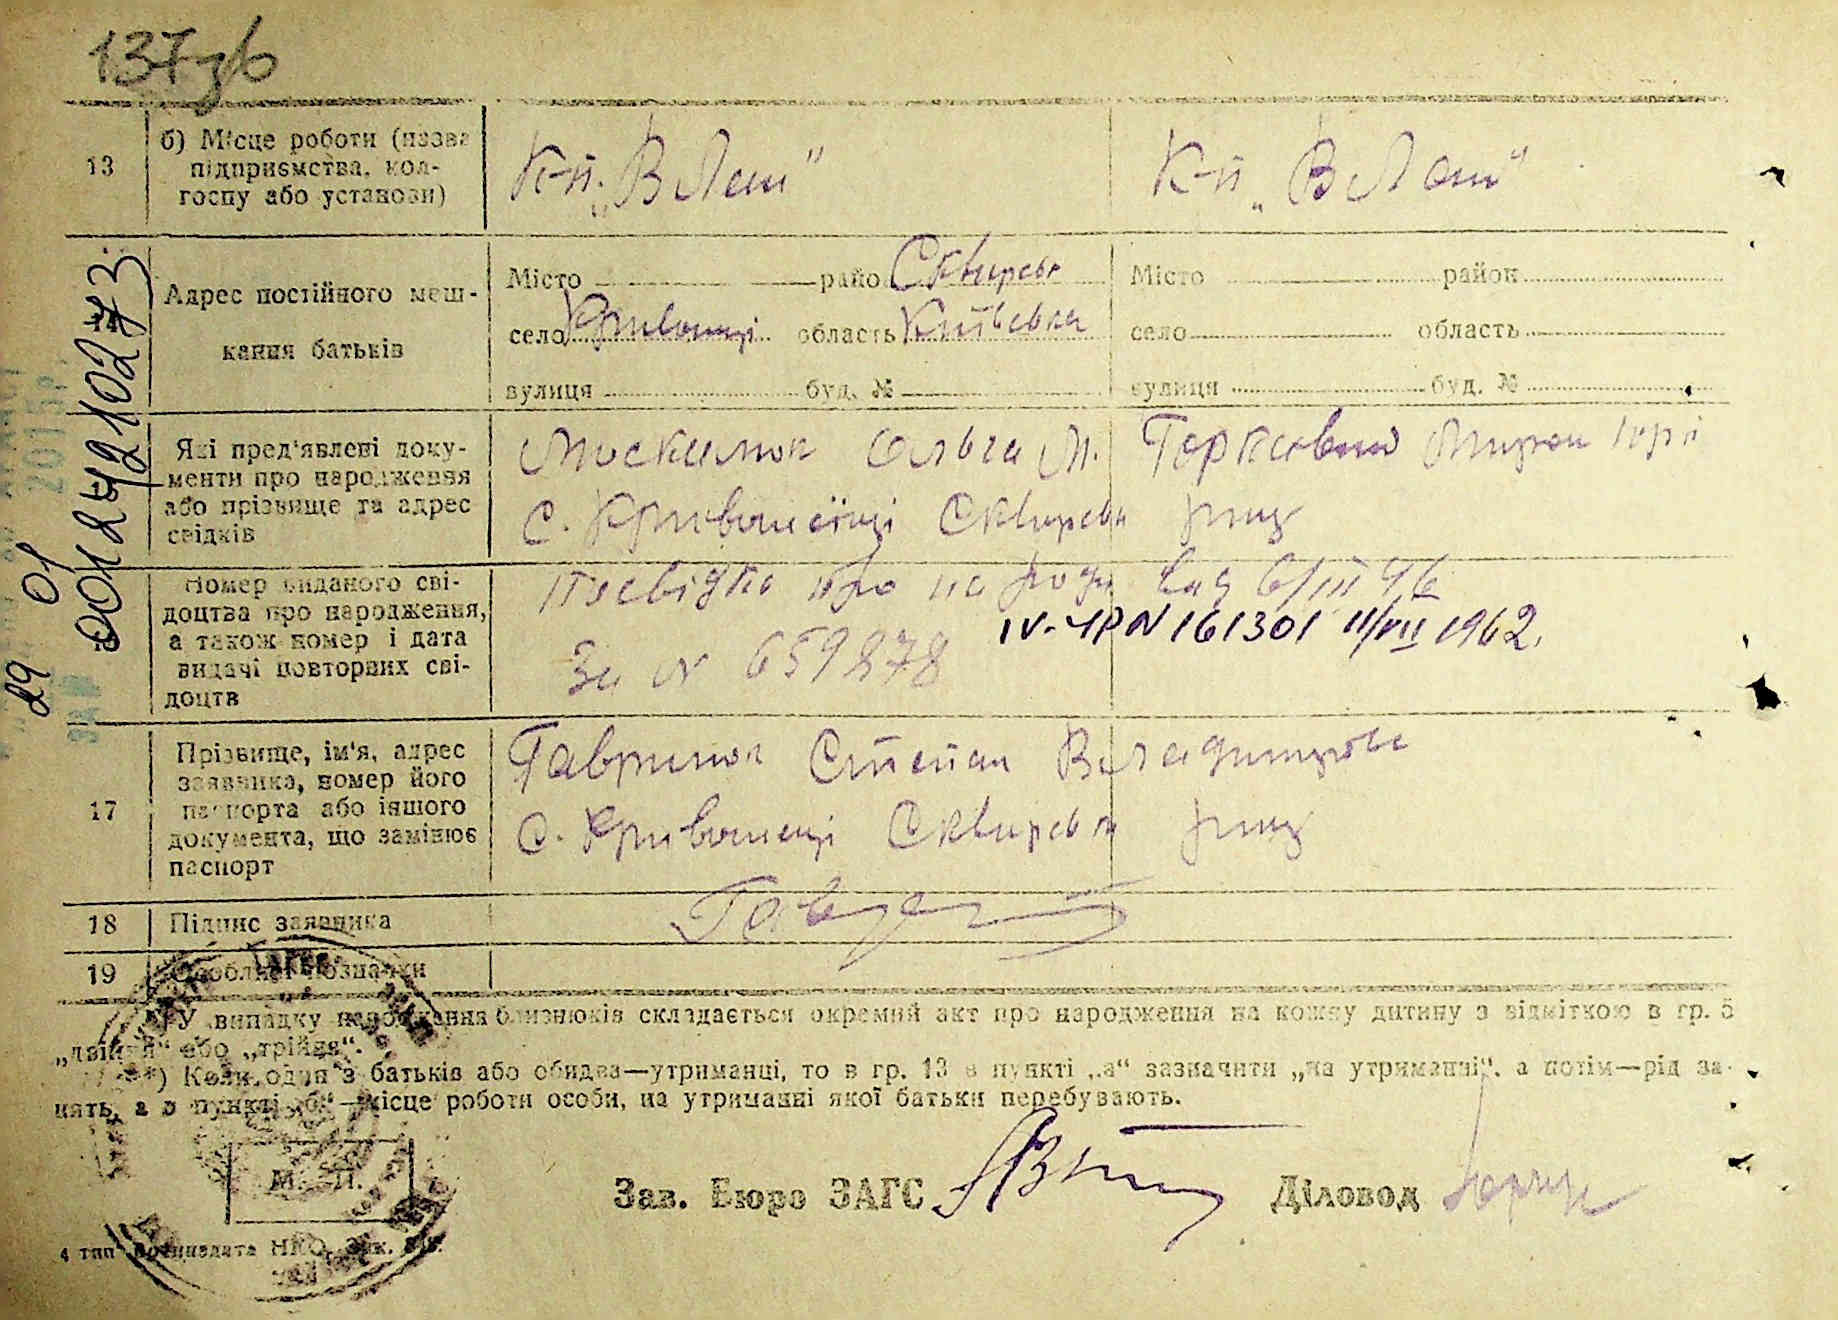 137зв
13
б) Місце роботи (назва
підприємства, кол-
госпу або установи)
К-п. „В Лен"
К-п „В Лен"
Адрес постійного меш-
кання батьків
Місто район Сквирськ
село Кривошиїнці область Київська
вулиця буд. №
Місто район
село область
вулиця буд. №
Які пред'явлені доку-
менти про народження
або прізвище та адрес
свідків
Ольга М.
Мирон Юрі
с. Кривошеїнці Сквирськ р-ну
Номер виданого сві-
доцтва про народження,
а також номер і дата
видачі повторних сві-
доцтв
Посвідка про на родж від 6/III 46
IV-ЧР N 161301 11/VII 1962.
За N 659878
17
Прізвище, ім'я, адрес
заявника, номер його
паспорта або іншого
документа, що замінює
паспорт
Гаврилюк Степан Владимирови
с. Кривошеїнці Сквирськ р-ну
18
Підпис заявника
19
Особливі позначки
*) У випадку народження близнюків складається окремий акт про народження на кожну дитину з відміткою в гр. 5
„двійня" або „трійня".
**) Коли один з батьків або обидва—утриманці, то в гр. 13 в пункті „а" зазначити „на утриманні", а потім—рід за-
нять, а в пункті „б"—місце роботи особи, на утриманні якої батьки перебувають.
М. П.
Зав. Бюро ЗАГС
Діловод
4 тип Воениздата НКО, Зак.
29 01
00124210273
2015р.